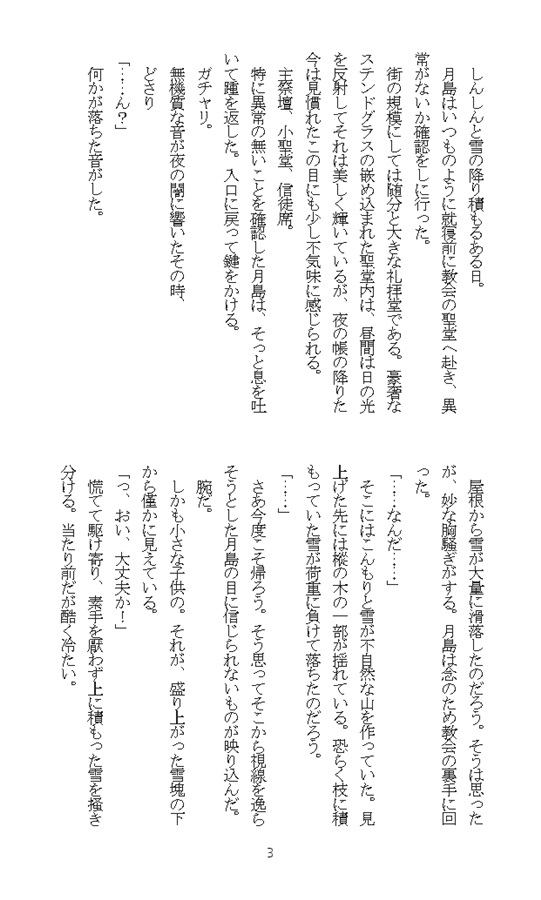 しんしんと雪の降り積もるある日。
月島はいつものように就寝前に教会の聖堂へ赴き、異
常がないか確認をしに行った。
街の規模にしては随分と大きな礼拝堂である。豪奢な
ステンドグラスの嵌め込まれた聖堂内は、昼間は日の光
を反射してそれは美しく輝いているが、夜の帳の降りた
今は見慣れたこの目にも少し不気味に感じられる。
主祭壇、小聖堂、信徒席。
特に異常の無いことを確認した月島は、そっと息を吐
いて踵を返した。入口に戻って鍵をかける。
ガチャリ。
無機質な音が夜の闇に響いたその時、
どさり
「……ん？」
何かが落ちた音がした。
屋根から雪が大量に滑落したのだろう。そうは思った
が、妙な胸騒ぎがする。月島は念のため教会の裏手に回
った。
「……なんだ……」
そこにはこんもりと雪が不自然な山を作っていた。見
上げた先には樅の木の一部が揺れている。恐らく枝に積
もっていた雪が荷重に負けて落ちたのだろう。
「……」
さあ今度こそ帰ろう。そう思ってそこから視線を逸ら
そうとした月島の目に信じられないものが映り込んだ。
腕だ。
しかも小さな子供の。それが、盛り上がった雪塊の下
から僅かに見えている。
「っ、おい、大丈夫か！」
慌てて駆け寄り、素手を厭わず上に積もった雪を掻き
分ける。当たり前だが酷く冷たい。
3